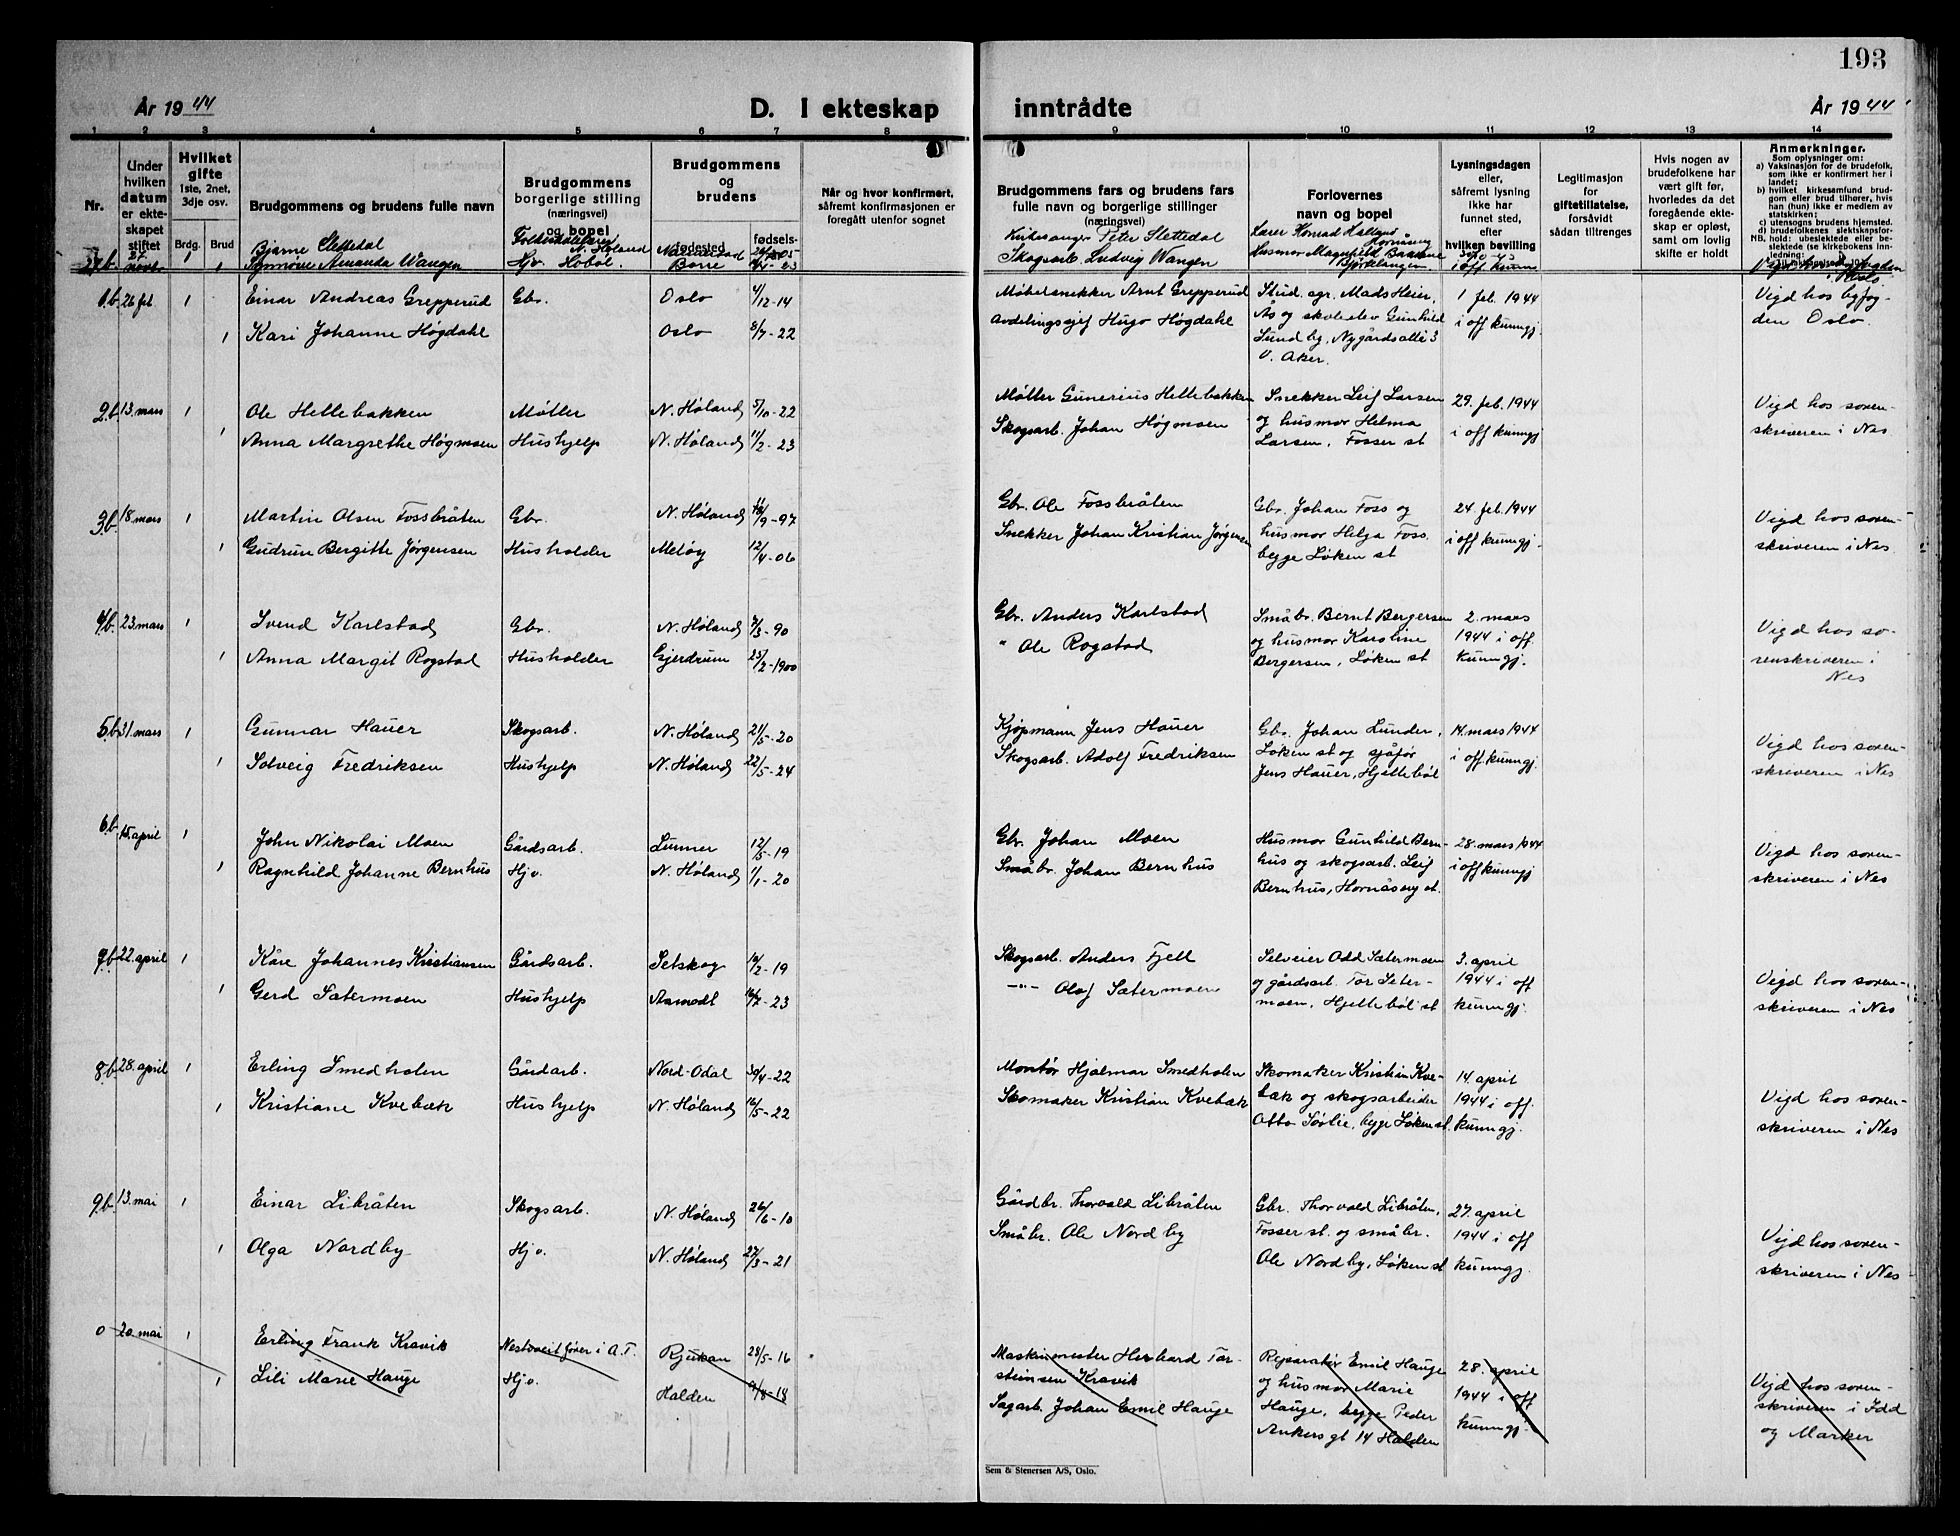 193
År 1944
D. I ekteskap
inntrådte
År 1944
1 2 3 4 5 6 7 8
9 10 11 12 13 14
Nr.
Under hvilken datum er ekteskapet stiftet
Hvilket gifte
1ste, 2net, 3dje osv.
Brdg. Brud
Brudgommens og brudens fulle navn
Brudgommens borgerlige stilling (næringsvei) og bopel
Brudgommens og brudens
fødested
fødsels-
Når og hvor konfirmert, såfremt konfirmasjonen er foregått utenfor sognet
Brudgommens fars og brudens fars fulle navn og borgerlige stillinger (næringsvei)
Forlovernes navn og bopel
Lysningsdagen eller, såfremt lysning ikke har funnet sted, efter hvilken bevilling
Legitimasjon for giftetillatelse, forsåvidt sådan tiltrenges
Hvis nogen av brudefolkene har vært gift før, hvorledes da det foregående ekteskap er opløst, samt om lovlig skifte er holdt
Anmerkninger.
Som oplysninger om:
a) Vaksinasjon for de brudefolk, som ikke er konfirmert her i landet;
b) hvilket kirkesamfund brudgom eller brud tilhører, hvis han (hun) ikke er medlem av statskirken;
c) utensogns brudens hjemsted.
d) brudefolkenes slektskapsforhold: ubeslektede eller beslektede (se kirkebokens innledning:
27 b 27 nov. 1 Bjarne Slettedal N. Høland
1 Synnøve Amanda Wangen Hjv. Hobøl Borre
Kirkesanger Peter Slettedal
Skogsarb. Ludvig Wangen
Lærer Konrad Kallaas
Husmor Magnhild
Bjørkelangen
i off kunn
1.b. 26 feb 1 Einar Andreas Grepperud Gbr. Oslo 4/12-14
1 Kari Johanne Høgdahl Oslo 8/7-22
Møbelsnekker Arnt Grepperud
Avdelingssjef Hugo Høgdahl
Stud. agr. Mads Heier,
Ås og skoleelev Gunhild
Lundby, Nygårdsallé 3
V. Aker.
1 feb. 1944
i off kunngj.
Vigd hos byfog-
den Oslo.
2.b. 13. mars 1 Ole Hellebakken Møller N. Høland 5/10-22
1 Anna Margrethe Høgmoen Hushjelp N. Høland 11/2-23
Møller Gunerius Hellebakken
Skogsarb. Johan Høgmoen
Snekker Leif Larsen
og husmor Helma
Larsen, Fosser st
29. feb. 1944
i off kunngj
Vigd hos soren-
skriveren i Nes
3.b. 18. mars 1 Martin Olsen Fossbråten Gbr. N. Høland 18/9-97
1 Gudrun Bergitte Jørgensen Husholder Meløy 12/4-06
Gbr. Ole Fossbråten
Snekker Johan Kristian Jørgensen
Gbr. Johan Foss og
husmor Helga Foss.
begge Løken st
24. feb. 1944
i off kunngj.
Vigd hos soren-
skriveren i Nes
4.b. 23. mars 1 Svend Karlstad Gbr. N. Høland 7/3-90
1 Anna Margit Rogstad Husholder Gjerdrum 25/2-1900
Gbr. Anders Karlstad
" Ole Rogstad
Småbr. Bernt Bergersen
og husmor Karoline
Bergersen, Løken st
2. mars
1944 i off
kunngj.
Vigd hos so-
renskriveren i
Nes
5.b. 31. mars 1 Gunnar Hauer Skogsarb. N. Høland 21/5-20
1 Solveig Fredriksen Hushjelp N. Høland 22/5-24
Kjøpmann Jens Hauer
Skogsarb. Adolf Fredriksen
Gbr. Johan Lunder,
Løken st og sjåfør
Jens Hauer, Hjellebøl
14. mars 1944
i off kunngj.
Vigd hos soren-
skriveren i Nes
6.b. 15. april 1 John Nikolai Moen Gårdsarb. Lunner 12/5-19
1 Ragnhild Johanne Bernhus Hjv. N. Høland 1/1-20
Gbr. Johan Moen
Småbr. Johan Bernhus
Husmor Gunhild Bern-
hus og skogsarb. Leif
Bernhus, Hornåseng st.
28. mars 1944
i off kunngj
Vigd hos soren-
skriveren i Nes
7.b. 22. april 1 Kåre Johannes Kristiansen Gårdsarb. Setskog 14/2-19
1 Gerd Sætermoen Hushjelp Aamodt 16/7-23
Skogsarb. Anders Fjell
—"— Olaf Sætermoen
Selveier Odd Sætermoen
og gårdsarb. Tor Seter-
moen, Hjellebøl st
3. april
1944 i off
kunngj.
Vigd hos soren-
skriveren i Nes
8.b. 28. april 1 Erling Smedholen Gårdarb. Nord-Odal 30/4-22
1 Kristiane Kvebæk Hushjelp N. Høland 16/5-22
Montør Hjalmar Smedholen
Skomaker Kristian Kvebæk
Skomaker Kristian Kve-
bæk og skogsarbeider
Otto Sørlie, begge Løken st.
14. april
1944 i off.
kunngj.
Vigd hos soren-
skriveren i Nes
9.b. 13. mai 1 Einar Libråten Skogsarb. N. Høland 26/6-10
1 Olga Nordby Hjv. N. Høland 27/3-21
Gårdbr. Thorvald Libråten
Småbr. Ole Nordby
Gbr. Thorvald Libråten,
Fosser st. og småbr.
Ole Nordby, Løken st
27. april
1944 i off
kunngj.
Vigd hos soren-
skriveren i Nes
0 20. mai 1 Erling Frank Kravik Nestsveitfører i A.T. Rjukan 28/5-16
1 Lili Marie Hauge Hjv. Halden 9/8-18
Maskinmester Herbard Tor-
steinsen Kravik
Sagarb. Johan Emil Hauge
Reparatør Emil Hauge
og husmor Marie
Hauge, begge Peder
Ankers gt 14 Halden
28. april
1944 i off
kunngj.
Vigd hos soren-
skriveren i Idd
og Marker
Sem & Stenersen A/S, Oslo.